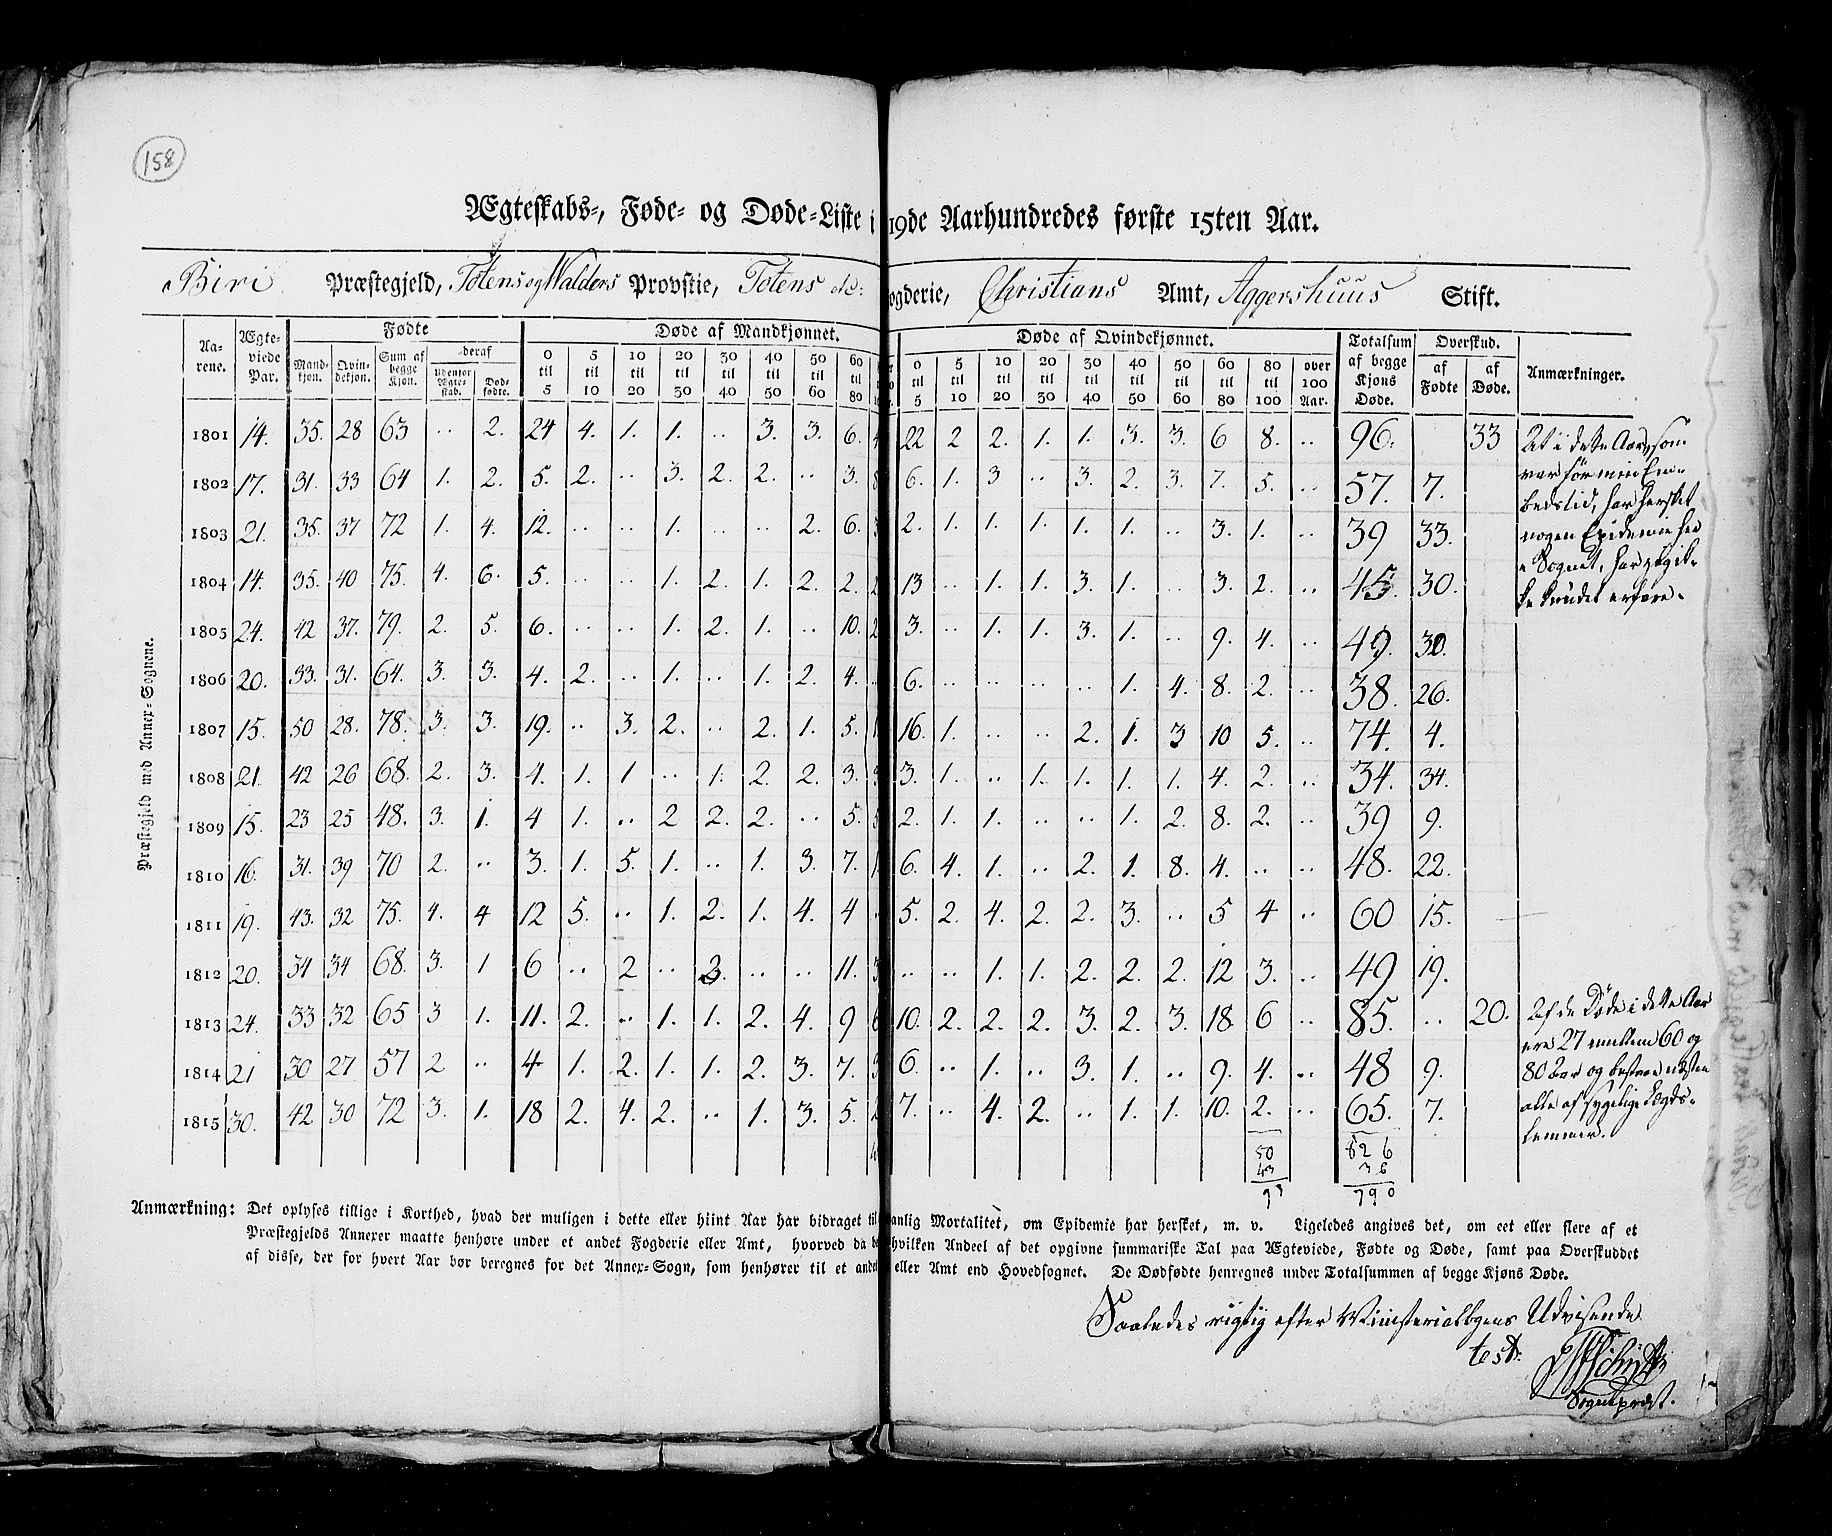 158
Ægteskabs-, Føde- og Døde-Liste i 19de Aarhundredes første 15ten Aar.
Biri Præstegjeld, Totens og Walders Provstie, Totens ogderie, Christians Amt, Aggershuus Stift.
Præstegjeld med Annex-Sognene.
Aarene. Ægteviede Par. Fødte Døde af Mandkjønnet. Døde af Qvindekjønnet. Totalsum af begge Kjøns Døde. Overskud. Anmærkninger.
Mandkjøn. Qvindekjøn. Sum af begge Kjøn. deraf udenfor Ægteskab. Dødfødte. 0 til 5 5 til 10 10 til 20 20 til 30 30 til 40 40 til 50 50 til 60 60 til 80 0 til 5 5 til 10 10 til 20 20 til 30 30 til 40 40 til 50 50 til 60 60 til 80 80 til 100 over 100 Aar. af Fødte af Døde.
1801 14. 35. 28 63 .. 2. 24 4. 1. 1. .. 3. 3. 6. 4 22 2 2. 1. 1. 3. 3. 6 8. .. 96. 33
1802 17. 31. 33 64 1. 2. 5. 2. .. 3. 2. 2. .. 3. 8 6. 1. 3 .. 3. 2. 3. 7. 5. .. 57. 7.
1803 21. 35. 37 72 1. 4. 12. .. .. 1. .. .. 2. 6. 3 2. 1. 1. 1. 1. 1. .. 3. 1. .. 39 33.
1804 14. 35. 40 75. 4. 6. 5. .. .. 1. 2. 1. 2. 2. 2 13 .. 1. 1. 3. 1. .. 3. 2. .. 45. 30.
1805 24. 42 37. 79. 2. 5. 6. .. .. 1. 2. 1. .. 10. 2 3. .. 1. 1. 3. 1. .. 9. 4. .. 49. 30.
1806 20. 33. 31. 64. 3. 3. 4. 2. .. 1. .. 1. 2. 4. .. 6. .. .. .. .. 1. 4. 8. 2. .. 38. 26.
1807 15. 50 28. 78. 3. 3. 19. .. 3. 2. .. 2. 1. 5. 1 16. 1. .. .. 2. 1. 3 10 5. .. 74. 4.
1808 21. 42 26 68. 2. 3. 4. 1. 1 .. 1. 2. 2. 3. 3 3. 1. .. 1. 1. 1. 1. 4. 2. .. 34. 34.
1809 15. 23 25 48. 3. 1. 4 1. .. 2 2. 2. .. 5. 5 2. 1. 1. .. .. 1. 2. 8. 2. .. 39 9.
1810 16. 31. 39 70 2. .. 3. 1. 5. 1. .. 1. 3. 7. 1 6. 4. 1. .. 2. 1. 8. 4. .. .. 48. 22.
1811 19. 43. 32 75. 4. 4 12 5. .. 1. 2. 1. 4. 4 . 5. 2. 4. 2. 2. 3. .. 5 4 .. 60 15.
1812 20. 34 34 68. 3. 1 6 .. 2 .. 3. .. .. 11. 3 .. .. 1. 1. 2. 2. 2. 12 3. .. 49 19.
1813 24. 33 32 65 3 1. 11. 2. .. 1. 1. 2. 4. 9 6 10. 2. 2. 2. 3. 2. 3. 18 6 .. 85. .. 20.
1814 21 30 27 57 2 .. 4 1. 2. 1. 1. 2. 3. 7. 3 6. .. 1. .. 3. 1. .. 9. 4. .. 48 9.
1815 30. 42 30 72 3. 1. 18 2. 4. 2. .. 1. 3. 5. 2 7. .. 4. 2. .. 1. 1. 10. 2. .. 65. 7.
50 626
43 36
93 790
At i dette Aar, som
var før min Em-
bedstid, har hersket
nogen Epidemie her
i Sognet, har jeg ik-
ke kundet erfare.
Af de Døde i dette Aar
ere 27 mellem 60 og
80 Aar og bestaae næsten
alle af sygelige Lægds-
lemmer.
Anmærkning: Det oplyses tillige i Korthed, hvad der muligen i dette eller hiint Aar har bidraget til anlig Mortalitet, om Epidemie har hersket, m. v. Ligeledes angives det, om eet eller flere af et
Præstegjelds Annexer maatte henhøre under et andet Fogderie eller Amt, hvorved da be hvilken Andeel af det opgivne summariske Tal paa Ægteviede, Fødte og Døde, samt paa Overskuddet
af disse, der for hvert Aar bør beregnes for det Annex-Sogn, som henhører til et andet eller Amt end Hovedsognet. De Dødfødte henregnes under Totalsummen af begge Kjøns Døde.
Saaledes rigtig efter Ministerialbogens Udvisende
test:
Sognepræst.